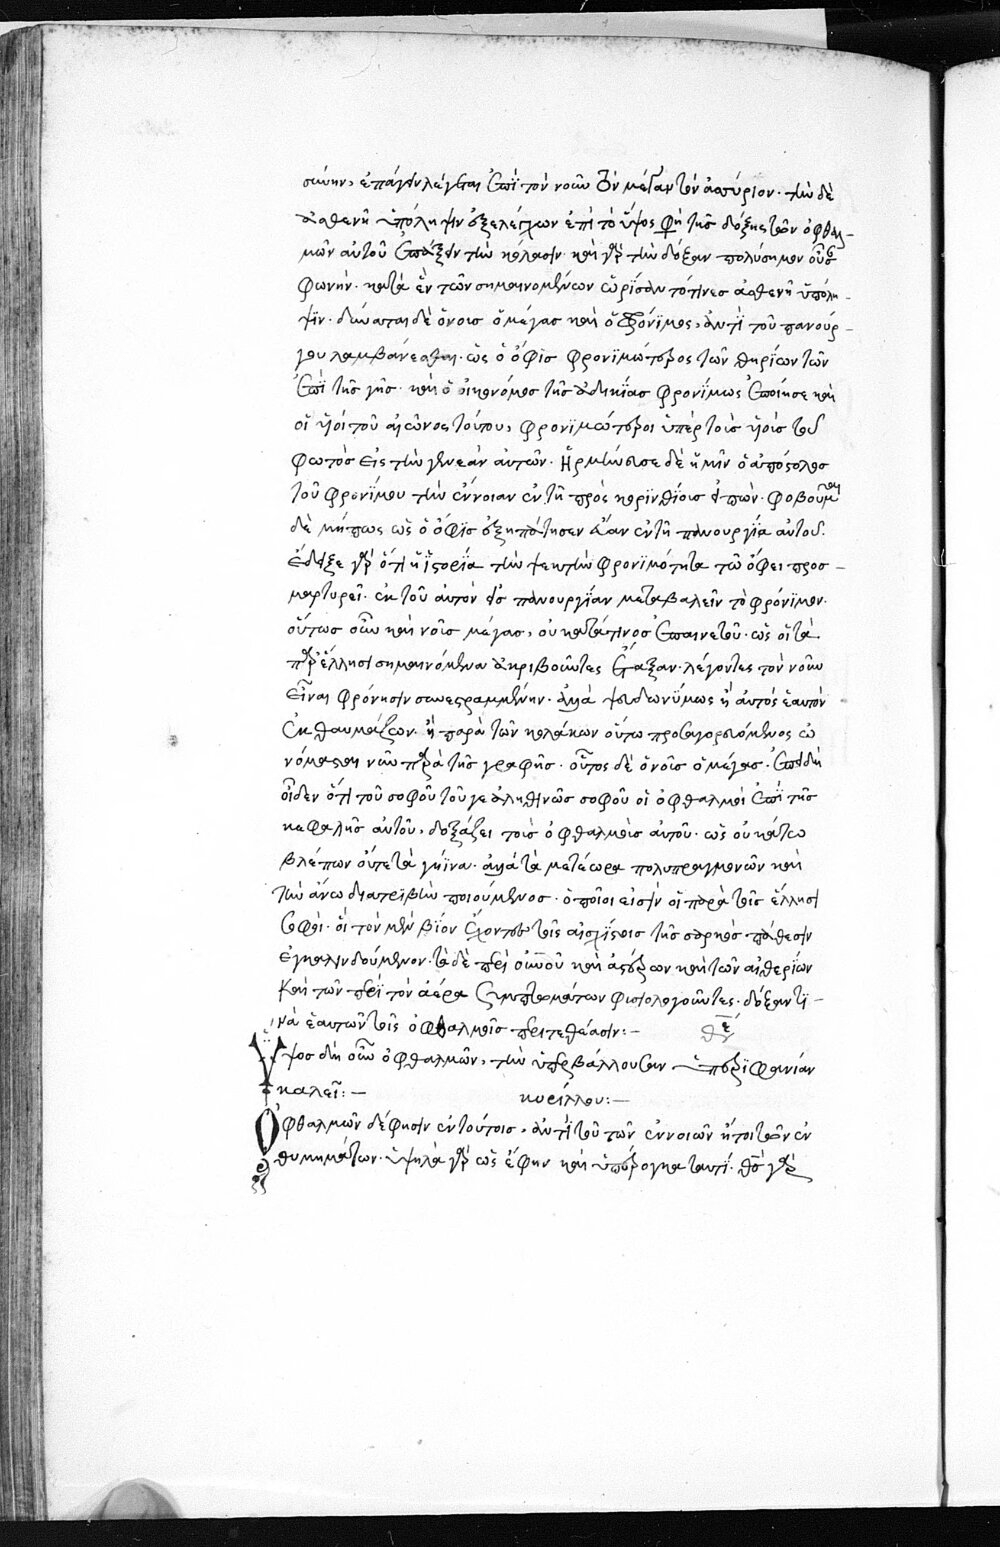 ἐπάγειν λέγεται ἐπὶ τὸν νοῦν τὸν μέγαν τὸν ἀσσύριον· τὴν δὲ
ἀσθενῆ ὑπόληψιν ἐξελέγχων ἐπὶ τὸ ὕψος φη τῆς δόξης τῶν ὀφθαλ-
μῶν αὐτοῦ ἐπάξειν τὴν κόλασιν· καὶ γὰρ τὴν δόξαν πολύσημον οὖσαν
φωνὴν· κατὰ ἓν τῶν σημαινομένων ὡρίσαντό τινες ἀσθενῆ ὑπόλη-
ψιν· δύναται δὲ ὁ νοῦς ὁ μέγας καὶ ὁ φρόνιμος, ἀντὶ τοῦ πανούρ-
γου λαμβάνεσθαι· ὡς ὁ ὄφις φρονιμώτερος τῶν θηρίων τῶν
ἐπὶ τῆς γῆς· καὶ ὁ οἰκονόμος τῆς ἀδικίας φρονίμως ἐποίησε καὶ
οἱ υἱοὶ τοῦ αἰῶνος τούτου, φρονιμώτεροι ὑπὲρ τοὺς υἱοὺς τοῦ
φωτὸς εἰς τὴν γενεὰν αὐτῶν· Ἡρμήνευσε δὲ ἡμῖν ὁ ἀπόστολος
τοῦ φρονίμου τὴν ἔννοιαν ἐν τῇ πρὸς κορινθίους εἰπών· φοβοῦμαι
δὲ μήπως ὡς ὁ ὄφις ἐξηπάτησεν εὔαν ἐν τῇ πανουργίᾳ αὐτοῦ·
ἔδειξε γὰρ ὅτι ἡ ἱστορία τὴν ψεκτὴν φρονιμότητα τῷ ὄφει προσ-
μαρτυρεῖ· ἐκ τοῦ αὐτὸν εἰς πανουργίαν μεταβαλεῖν τὸ φρόνιμον·
οὕτως οὖν καὶ νοῦς μέγας, οὐ κατά τινος ἐπαινετοῦ· ὡς οἱ τὰ
παρ' ἕλλησι σημαινόμενα ἀκριβοῦντες ἔταξαν· λέγοντες τὸν νοῦν
εἶναι φρόνησιν συνεστραμμένην· ἀλλὰ ψευδωνύμως ἢ αὐτὸς ἑαυτὸν
ἐκθαυμάζων· ἢ παρὰ τῶν κολάκων οὕτω προσαγορευόμενος ὠ
νόμασται νῦν παρὰ τῆς γραφῆς· οὗτος δὲ ὁ νοῦς ὁ μέγας· ἐπειδὴ
οἶδεν ὅτι τοῦ σοφοῦ τοῦ γε ἀληθινῶς σοφοῦ οἱ ὀφθαλμοὶ ἐπὶ τῆς
κεφαλῆς αὐτοῦ, δοξάζει τοὺς ὀφθαλμοὺς αὐτοῦ· ὡς οὐ κάτω
βλέπων οὔτε τὰ γήϊνα· ἀλλὰ τὰ μετέωρα πολυπραγμονῶν καὶ
τὴν ἄνω διατριβὴν ποιούμενος· ὁποῖοι εἰσὶν οἱ παρὰ τοῖς ἕλλησι
σοφοί· οἱ τὸν μὲν βίον ἔχοντες τοῖς αἰσχίστοις τῆς σαρκὸς πάθεσιν
ἐγκαλινδούμενον· τὰ δὲ περὶ οὐρανοῦ καὶ ἀστέρων καὶ τῶν αἰθερίων
καὶ τῶν περὶ τὸν ἀέρα συμπτωμάτων φυσιολογοῦντες· δόξαν τι-
νὰ ἑαυτῶν τοῖς ὀφθαλμοῖς περιτεθέασιν:—
Ὕψος δὴ οὖν ὀφθαλμῶν, τὴν ὑπερβάλλουσαν ὑπεροψίαν
καλεῖ:— κυρίλλου:—
Ὀφθαλμῶν δέ φησιν ἐν τούτοις, ἀντὶ τοῦ τῶν ἐννοιῶν ἤτοι τῶν ἐν
θυμημάτων· ὑψηλὰ γὰρ ὡς ἔφην καὶ ὑπέρογκα ταυτί· θς γὰρ